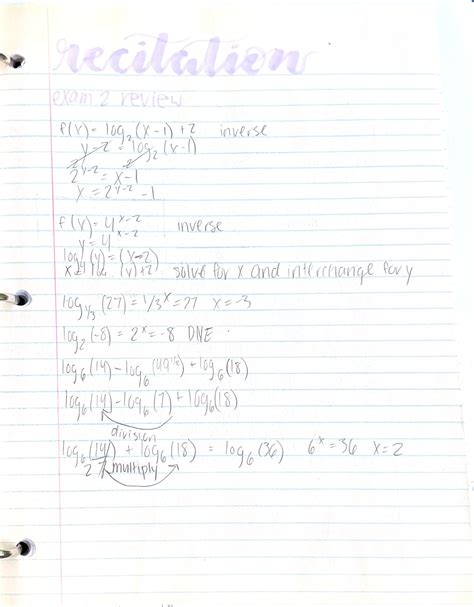 recitation
exam 2 review
f(x) = log₂(x-1) +2 inverse
y-2 = log₂(x-1)
2^(y-2) = x-1
x = 2^(y-2) -1
f(x) = 4^(x-2) inverse
y = 4^(x-2)
log₄(y) = (x-2)
(y)+2 solve for x and interchange for y
log_(1/3)(27) = 1/3^x = 27 x=-3
log₂(-8) = 2^x = -8 DNE
log₆(14) - log₆(49^(1/2)) + log₆(18)
log₆(14) - log₆(7) + log₆(18)
division
log₆(14/7) + log₆(18) = log₆(36) 6^x = 36 x=2
2 multiply